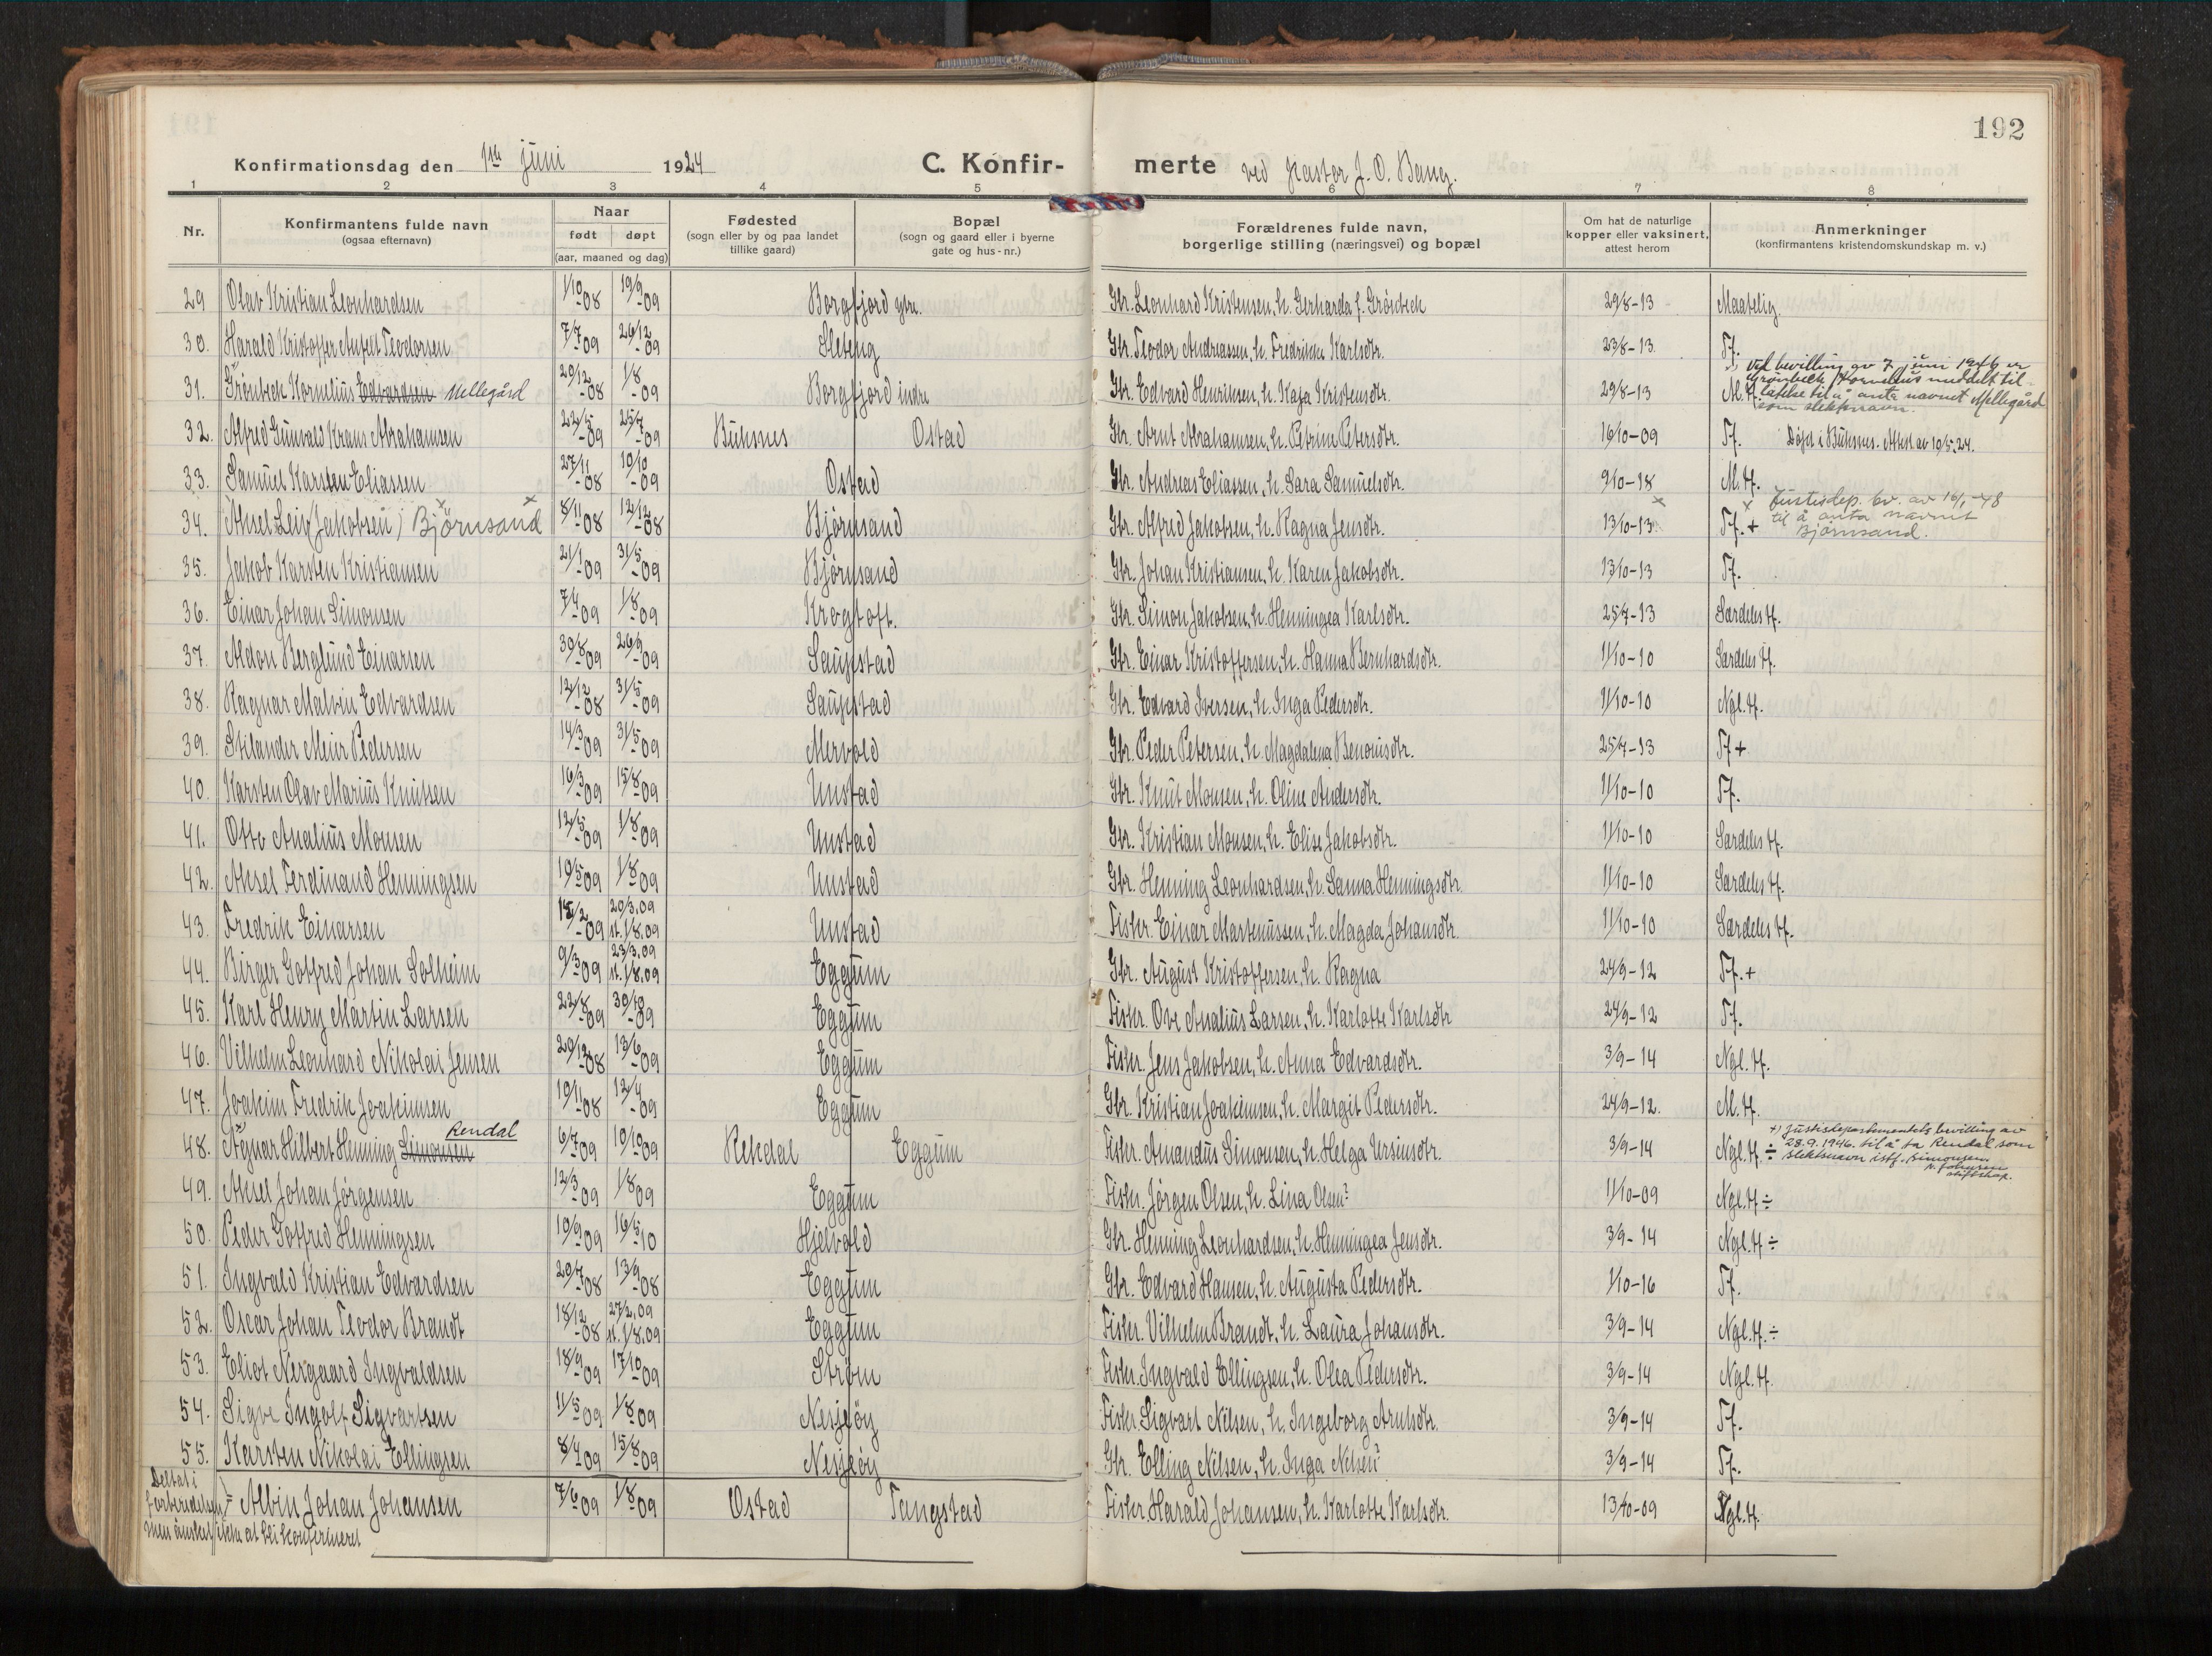 192
Konfirmationsdag den 1ste juni 1924 C. Konfirmerte ved Pastor J. O. Bang.
1 2 3 4 5 6 7 8
Nr. Konfirmantens fulde navn (ogsaa efternavn) Naar født døpt (aar, maaned og dag) Fødested (sogn eller by og paa landet tillike gaard) Bopæl (sogn og gaard eller i byerne gate og hus-nr.) Forældrenes fulde navn, borgerlige stilling (næringsvei) og bopæl Om hat de naturlige kopper eller vaksinert, attest herom Anmerkninger (konfirmantens kristendomskundskap m. v.)
29 Olav Kristian Leonhardsen 1/10-08 19/9-09 Borgfjord ytre. Gbr. Leonhard Kristensen, h. Gerharda f. Grönbech 29/8-13 Maatelig
30. Harald Kristoffer Antell Teodorsen 7/7-09 26/12-09 Steteng Gbr. Teodor Andreassen, h. Fredrikke Karlsdtr. 23/8-13 Tf.
31. Grönbech Kornelius Edvardsen Mellegård 20/12-08 1/8-09 Borgfjord indre Gbr. Edvard Henriksen, h. Kaja Kristensdtr. 29/8-13 M. H. Ved bevilling av 7. juni 1946 er Grönbech Kornelius meddelt tillatelse til å anta navnet Mellegård som slektsnavn.
32. Alfred Gunvald Krans Abrahamsen 22/5-09 25/7-09 Buksnes Ostad Gbr. Arnt Abrahamsen, h. Petrine Petersdtr. 16/10-09 Tf. Döpt i Buksnes. Attest av 19/5.24.
33. Samuel Karsten Eliassen 27/11-08 10/10-09 Ostad Gbr. Andreas Eliassen, h. Sara Samuelsdtr. 9/10-18 M. H.
34. Aksel Leif Jakobsen / Björnsand 8/11-08 12/12-08 Björnsand Gbr. Alfred Jakobsen, h. Ragna Jensdtr. 13/10-13 Tf. + x Justisdep. bv. av 16/1-48 til å anta navnet Björnsand.
35. Jakob Karsten Kristiansen 21/1-09 31/5-09 Björnsand Gbr. Johan Kristiansen, h. Karen Jakobsdtr. 13/10-13 Tf.
36. Einar Johan Simonsen 7/4-09 1/8-09 Krogtoft. Gbr. Simon Jakobsen, h. Henningea Karlsdtr. 25/7-13 Særdeles H.
37. Aldon Berglund Einarsen 30/8-09 26/9-09 Saupstad Gbr. Einar Kristoffersen, h. Hanna Bernhardsdtr. 11/10-10 Særdeles H.
38. Ragnar Malvin Edvardsen 12/12-08 31/5-09 Saupstad Gbr. Edvard Iversen, h. Inga Pedersdtr. 11/10-10 Ngl. H.
39. Stilander Meir Pedersen 14/3-09 31/5-09 Mervold Gbr. Peder Petersen, h. Magdalena Benonisdtr. 25/7-13 Tf +
40. Karsten Olav Marius Knutsen 16/3-09 15/8-09 Unstad Gbr. Knut Monsen, h. Oline Andersdtr. 11/10-10 Tf.
41. Otto Analius Monsen 12/5-09 1/8-09 Unstad Gbr. Kristian Monsen, h. Elise Jakobsdtr. 11/10-10 Særdeles H.
42. Aksel Ferdinand Henningsen 19/5-09 1/8-09 Unstad Gbr. Henning Leonhardsen, h. Sanna Henningsdtr. 11/10-10 Særdeles H.
43. Fredrik Einarsen 15/2-09 20/3.09 st. 1/8.09 Unstad Fisker. Einar Martenussen, h. Magda Johansdtr. 11/10-10 Særdeles H.
44. Birger Gotfred Johan Solheim 9/3-09 23/3.09 st. 1/8.09 Eggum Gbr. August Kristoffersen, h. Ragna 24/9-12 Tf. +
45. Karl Henry Martin Larsen 22/8-09 30/10-09 Eggum Fisker. Ove Analius Larsen, h. Karlotte Karlsdtr 24/9-12 Tf.
46. Vilhelm Leonhard Nikolai Jensen 20/12-08 13/6-09 Eggum Fisker. Jens Jakobsen, h. Anna Edvardsdtr. 3/9-14 Ngl. H.
47. Joakim Fredrik Joakimsen 19/11-08 12/4-09 Eggum Gbr. Kristian Joakimsen, h. Margit Pedersdtr. 24/9-12. M. H.
48. Agnar Hilbert Henning Simonsen Rendal 6/7-09 10/10-09 Rekdal Eggum Fisker. Amandus Simonsen, h. Helga Ursinsdtr. 3/9-14 Ngl. H. ÷ +) Justisdepartementets bevilling av 28.9.1946. til å ta Rendal som slektsnavn istf. Simonsen
49. Aksel Johan Jörgensen 12/3-09 1/8-09 Eggum Fisker. Jörgen Olsen, h. Lina Olsen? 11/10-09 Ngl. H ÷
50. Peder Gotfred Henningsen 10/9-09 16/5-10 Hjelvold Gbr. Henning Leonhardsen, h. Henningea Jensdtr. 3/9-14 Ngl. H ÷
51. Ingvald Kristian Edvardsen 20/7-08 13/9-08 Eggum Gbr. Edvard Hansen, h. Augusta Pedersdtr. 1/10-16 Tf.
52. Oscar Johan Teodor Brandt 18/12-08 27/2.09 st. 1/8.09 Eggum Fisker. Vilhelm Brandt, h. Laura Johansdtr. 3/9-14 Ngl. H. ÷
53. Eliot Nergaard Ingvaldsen 18/9-09 17/10-09 Ström Fisker. Ingvald Ellingsen, h. Olea Pedersdtr. 3/9-14 Ngl. H.
54. Sigve Ingolf Sigvartsen 11/5-09 1/8-09 Nesjeöy Fisker Sigvart Nilsen, h. Ingeborg Arntsdtr. 3/9-14 Tf.
55. Karsten Nikolai Ellingsen 8/4-09 15/8-09 Nesjeöy Gbr. Elling Nilsen, h. Inga Nilsen? 3/9-14 Tf.
Deltat i forberedelsen men önsket ikke at bli konfirmeret } Albin Johan Johansen 7/6-09 1/8-09 Ostad Tangstad Fisker Harald Johansen, h. Karlotte Karlsdtr. 13/10-09 Ngl. H.